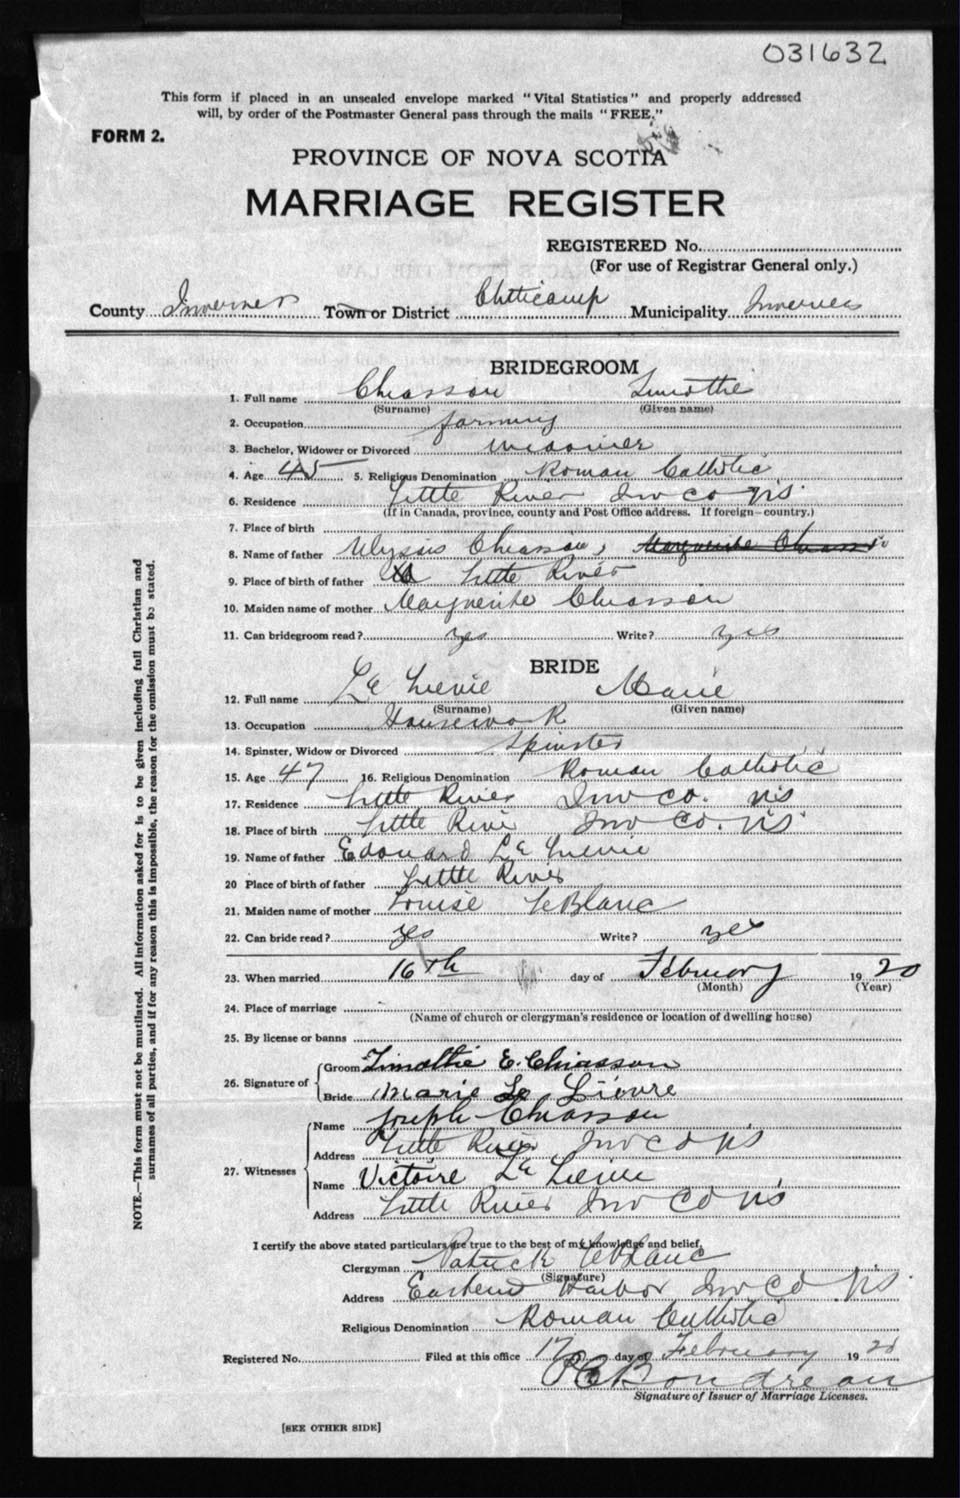 031632
This form if placed in an unsealed envelope marked "Vital Statistics" and properly addressed
will, by order of the Postmaster General pass through the mails "FREE."
FORM 2.
PROVINCE OF NOVA SCOTIA
MARRIAGE REGISTER
REGISTERED No.
(For use of Registrar General only.)
County Inverness Town or District Cheticamp Municipality Inverness
BRIDEGROOM
1. Full name Chiasson Timothie
(Surname) (Given name)
2. Occupation farming
3. Bachelor, Widower or Divorced widower
4. Age 45 5. Religious Denomination Roman Catholic
6. Residence Little River Inv Co NS
(If in Canada, province, county and Post Office address. If foreign—country.)
7. Place of birth
8. Name of father Ulysses Chiasson, Marguerite Chiasson
9. Place of birth of father Little River
10. Maiden name of mother Marguerite Chiasson
11. Can bridegroom read? yes Write? yes
BRIDE
12. Full name Le Lievre Marie
(Surname) (Given name)
13. Occupation Housework
14. Spinster, Widow or Divorced Spinster
15. Age 47 16. Religious Denomination Roman Catholic
17. Residence Little River Inv Co. NS
18. Place of birth Little River Inv Co. NS
19. Name of father Edouard Le Lievre
20 Place of birth of father Little River
21. Maiden name of mother Louise LeBlanc
22. Can bride read? yes Write? yes
23. When married 16th day of February 1920
(Month) (Year)
24. Place of marriage
(Name of church or clergyman's residence or location of dwelling house)
25. By license or banns
26. Signature of Groom Timothie E. Chiasson
Bride Marie Le Lièvre
27. Witnesses Name Joseph Chiasson
Address Little River Inv Co NS
Name Victoire Le Lievre
Address Little River Inv Co NS
I certify the above stated particulars are true to the best of my knowledge and belief,
Clergyman Patrick LeBlanc
(Signature)
Address Eastern Harbor Inv Co NS
Religious Denomination Roman Catholic
Registered No. Filed at this office 17 day of February 1920
Boudreau
Signature of Issuer of Marriage Licenses.
[SEE OTHER SIDE]
NOTE.—This form must not be mutilated. All information asked for is to be given including full Christian and
surnames of all parties, and if for any reason this is impossible, the reason for the omission must be stated.